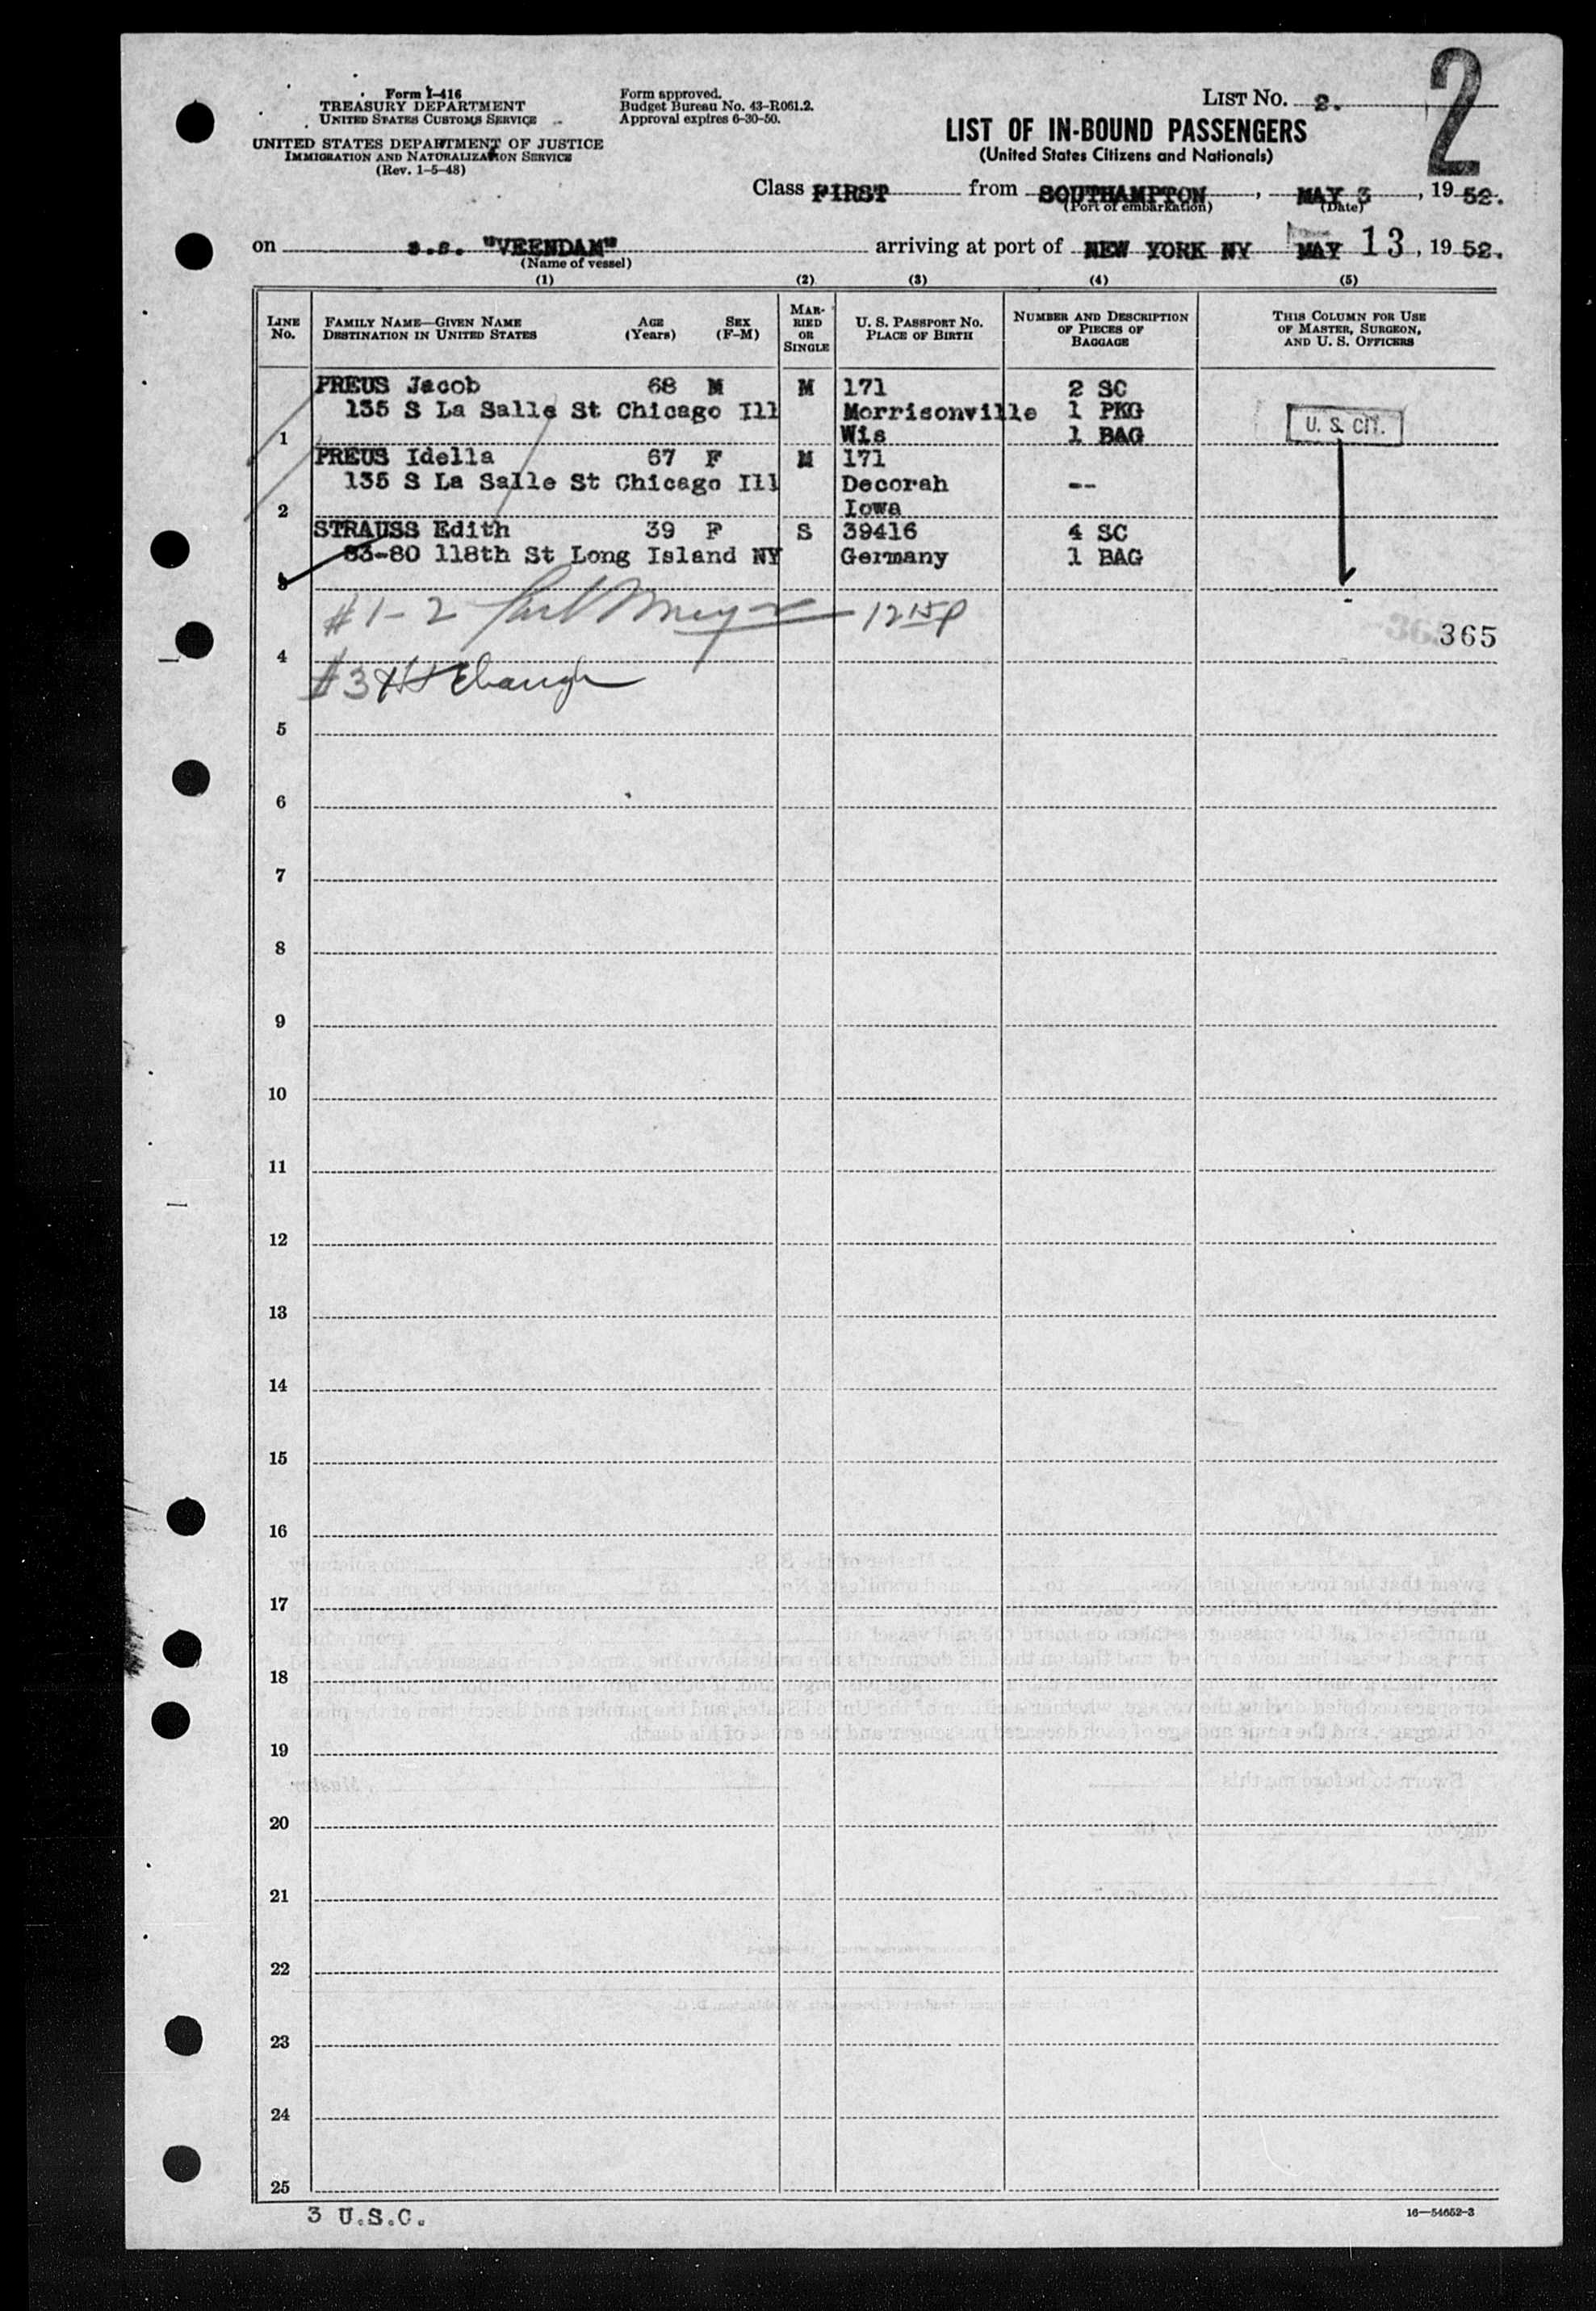 2
Form I-416
TREASURY DEPARTMENT
UNITED STATES CUSTOMS SERVICE
UNITED STATES DEPARTMENT OF JUSTICE
IMMIGRATION AND NATURALIZATION SERVICE
(Rev. 1-5-48)
Form approved.
Budget Bureau No. 43-R061.2.
Approval expires 6-30-50.
LIST NO. 2.
LIST OF IN-BOUND PASSENGERS
(United States Citizens and Nationals)
Class FIRST from SOUTHAMPTON, MAY 3, 19 52.
(Port of embarkation) (Date)
on s.s. "VEENDAM" arriving at port of NEW YORK NY MAY 13, 19 52.
(Name of vessel)
(1) (2) (3) (4) (5)
LINE No. FAMILY NAME—GIVEN NAME DESTINATION IN UNITED STATES AGE (Years) SEX (F-M) MARRIED OR SINGLE U. S. PASSPORT NO. PLACE OF BIRTH NUMBER AND DESCRIPTION OF PIECES OF BAGGAGE THIS COLUMN FOR USE OF MASTER, SURGEON, AND U. S. OFFICERS
PREUS Jacob 68 M M 171 2 SC
135 S La Salle St Chicago Ill Morrisonville 1 PKG
1 Wis 1 BAG U. S. CIT.
PREUS Idella 67 F M 171
135 S La Salle St Chicago Ill Decorah --
2 Iowa
STRAUSS Edith 39 F S 39416 4 SC
83-80 118th St Long Island NY Germany 1 BAG
3
#1-2 12 15 P
365
4
#3
5
6
7
8
9
10
11
12
13
14
15
16
17
18
19
20
21
22
23
24
25
3 U.S.C.
16—54652-3